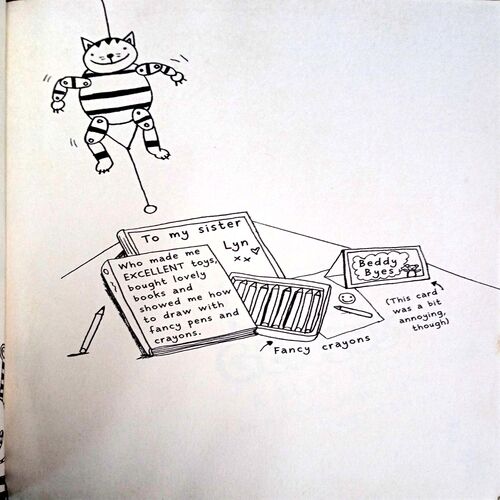 To my sister
Lyn
xx
Who made me
EXCELLENT toys,
bought lovely
books and
showed me how
to draw with
fancy pens and
crayons.
Beddy
Byes
(This card
was a bit
annoying,
though)
Fancy crayons